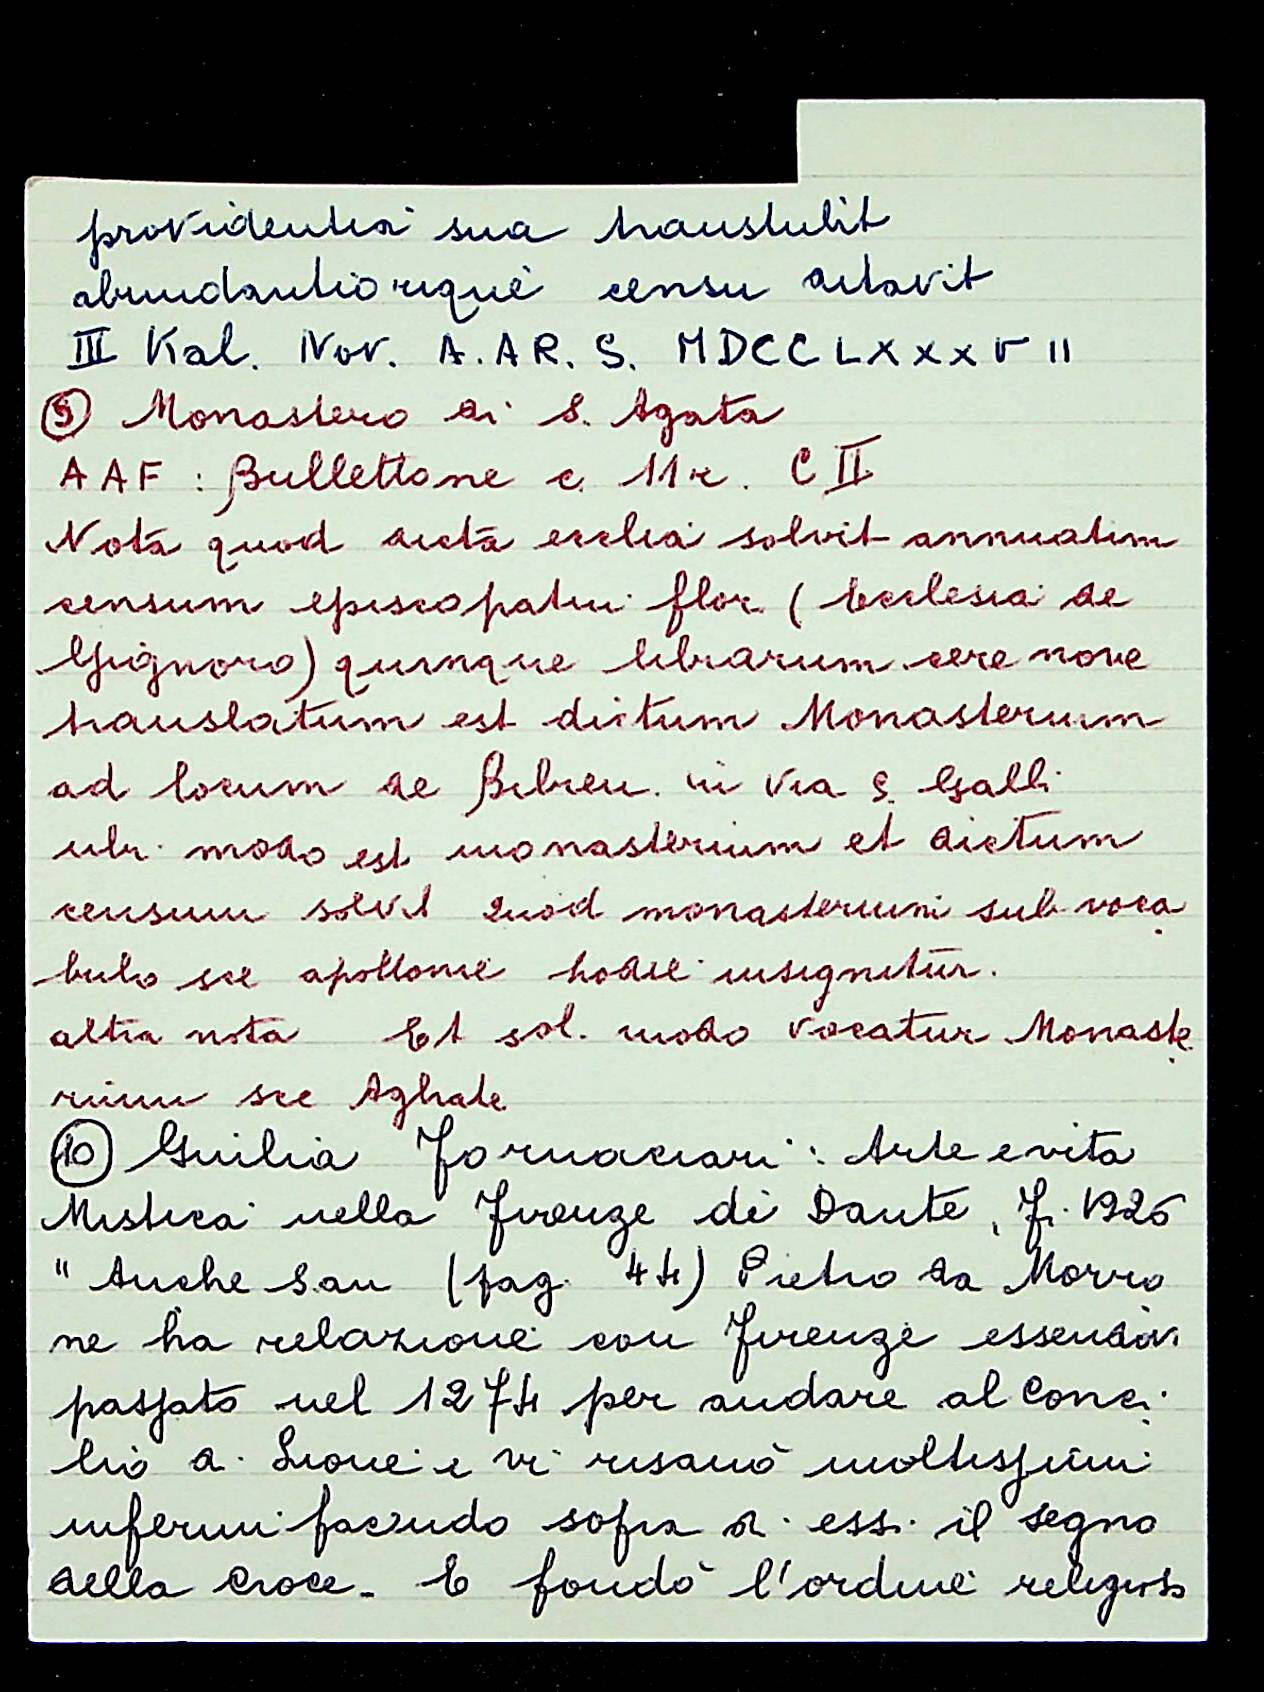 providentia sua transtulit
abundantiorique censu ditavit
III Kal. Nov. A. A R. S. MDCCLXXXVII
⑨ Monastero di S. Agata
AAF : Bullettone c. 11r. C II
Nota quod dicta ecclia solvit annuatim
censum episcopatui flor. (Ecclesia de
Gignoro) quinque librarum cere nove
translatum est dictum Monasterium
ad locum de Bibeu. in via S. Galli
ubi modo est monasterium et dictum
censum solvit Quod monasterium sub voca
bulo sce apollonie hodie insignitur.
altra nota Et sol. modo vocatur Monaste
rium sce Aghate
⑩ Giulia Fornaciari : Arte e vita
Mistica nella Firenze di Dante, Fi. 1926
" Anche San (pag. 44) Pietro da Morro
ne ha relazione con Firenze essendovi
passato nel 1274 per andare al Conci
lio a Lione e vi risanò moltissimi
infermi facendo sopra di essi il segno
della Croce - E fondò l'ordine religioso